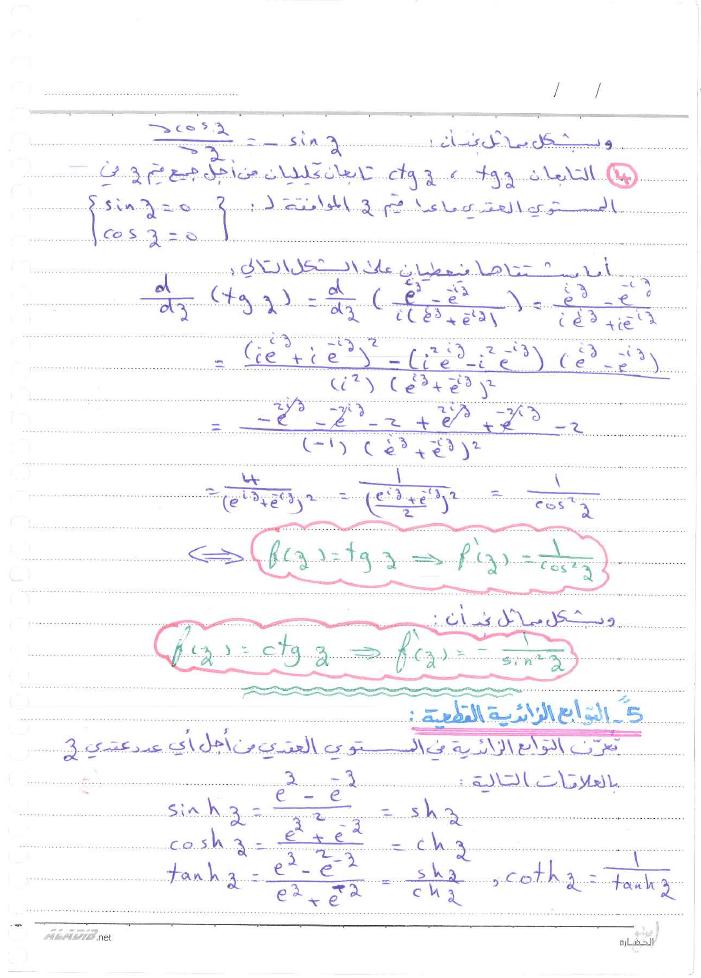 / /
وبشكل مماثل نجد أن: ∂cos z / ∂z = - sin z
④ التابعان tg z ، ctg z تابعان تحليليان من أجل جميع قيم z في
المستوي العقدي ماعدا قيم z الموافقة لـ: { sin z = 0
cos z = 0 }
أما مشتقاتها فتعطيان على الشكل التالي:
d/dz (tg z) = d/dz ( (e^{iz} - e^{-iz}) / (i(e^{iz} + e^{-iz})) ) = (e^{iz} - e^{-iz}) / (ie^{iz} + ie^{-iz})
= ((ie^{iz} + ie^{-iz})² - (i²e^{iz} - i²e^{-iz}) (e^{iz} - e^{-iz})) / ((i²) (e^{iz} + e^{-iz})²)
= (-e^{2iz} - e^{-2iz} - 2 + e^{2iz} + e^{-2iz} - 2) / ((-1) (e^{iz} + e^{-iz})²)
= 4 / (e^{iz} + e^{-iz})² = 1 / ((e^{iz} + e^{-iz}) / 2)² = 1 / cos² z
⟺ f(z) = tg z ⟹ f'(z) = 1 / cos² z
وبشكل مماثل نجد أن:
f(z) = ctg z ⟹ f'(z) = - 1 / sin² z
5ً- التوابع الزائدية القطعية:
تعرّف التوابع الزائدية في المستوي العقدي من أجل أي عدد عقدي z
بالعلاقات التالية:
sinh z = (e^z - e^{-z}) / 2 = sh z
cosh z = (e^z + e^{-z}) / 2 = ch z
tanh z = (e^z - e^{-z}) / (e^z + e^{-z}) = sh z / ch z , coth z = 1 / tanh z
.net
الحضارة